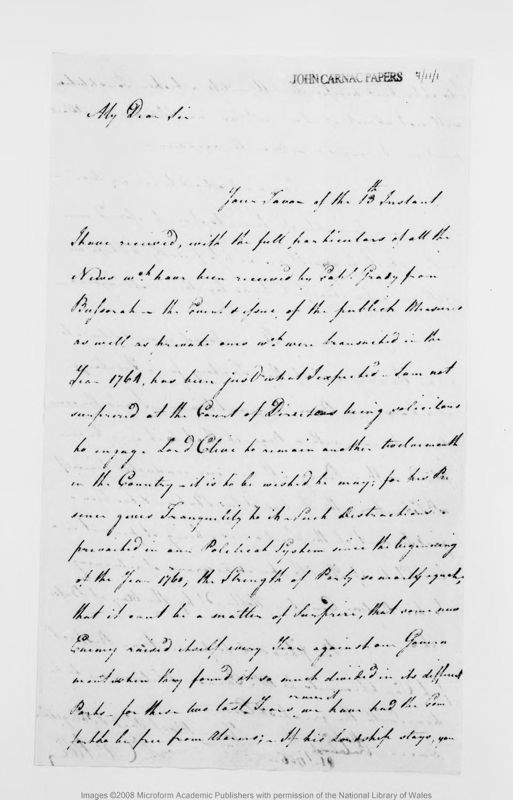 JOHN CARNAC PAPERS
My Dear Sir
Your Favor of the 13th Instant
I have received, with the full particulars of all the
News wch have been received by Capt. Grady from
Bussorah - the Event & issue, of the publick Measures
as well as private ones wch were transacted in the
Year 1764, has been just what I expected - I am not
surprized at the Court of Directors being solicitous
to engage Lord Clive to remain another twelvemonth
in the Country - it is to be wished he may; for his Pre
sence gives Tranquility to it - Such distractions
prevailed in our Political System since the beginning
of the Year 1760, the Strength of Party so nearly equal,
that it cant be a matter of Surprise, that some new
Enemy raised itself every Year against our Govern
ment when they found it so much divided in its different
Parts - for these two last Years we have had the Com
fort to be free from Alarms; - If his Lordship stays, you
Images ©2008 Microform Academic Publishers with permission of the National Library of Wales